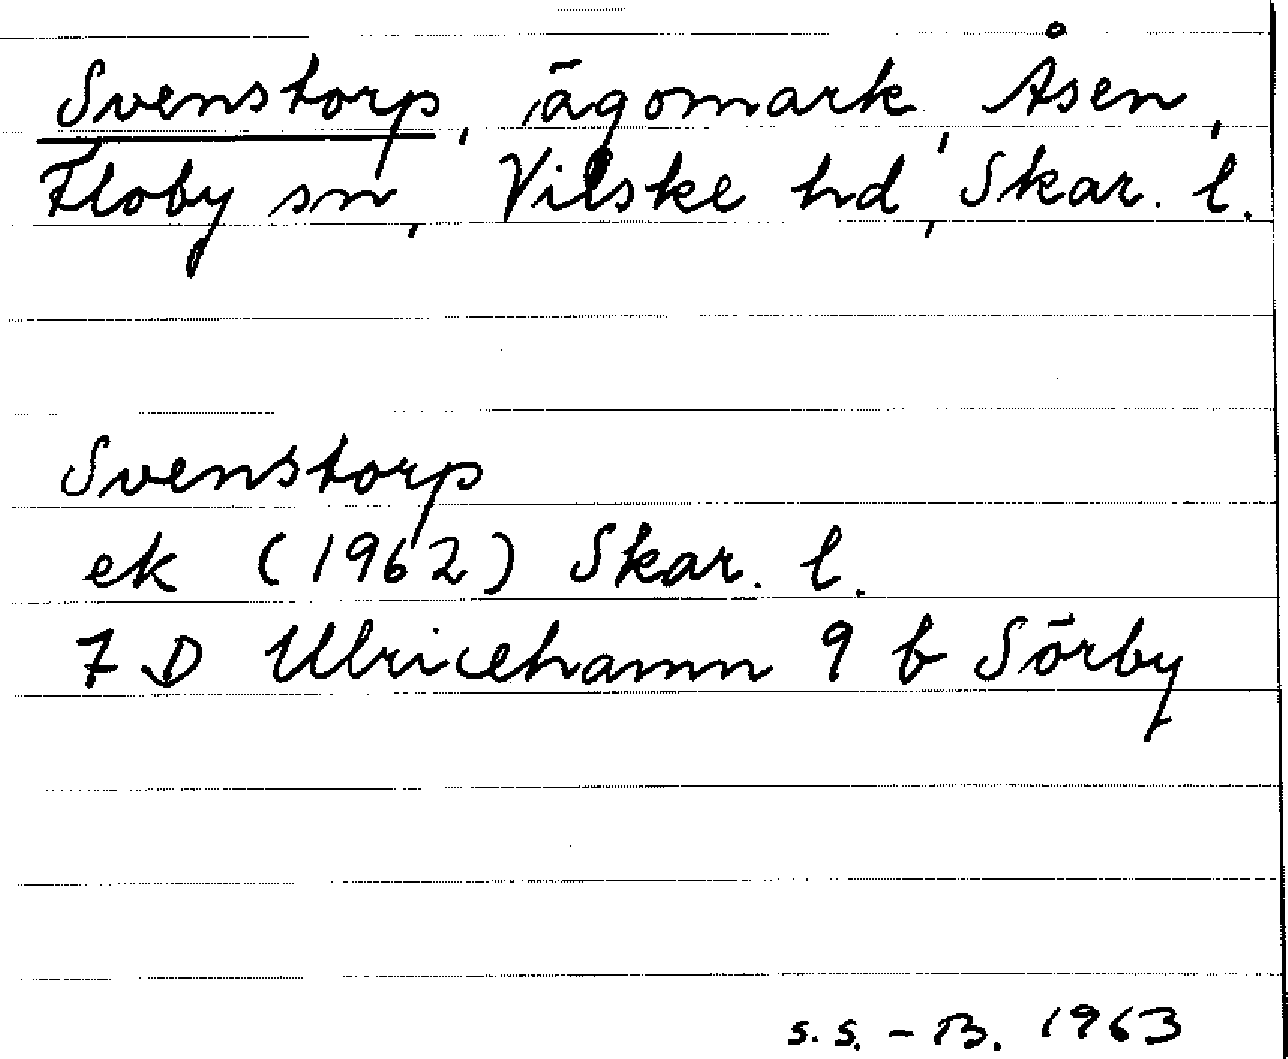 Svenstorp, ägomark, Åsen,
Floby sn, Vilske hd, Skar. l.
Svenstorp
ek (1962) Skar. l.
7 D Ulricehamn 9 b Sörby
S. S. - B. 1963